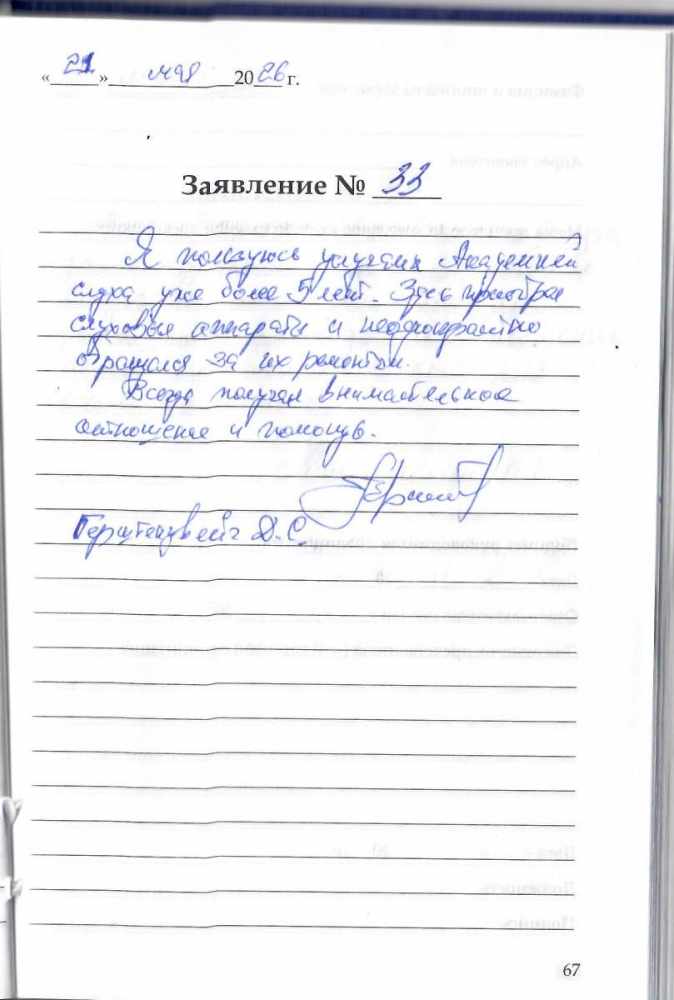 «21» мая 2026 г.
Заявление № 33
Я пользуюсь услугами Академии
слуха уже более 5 лет. Здесь приобрел
слуховые аппараты и неоднократно
обращался за их ремонтом.
Всегда получал внимательное
отношение и помощь.
Герштенцвейг Д.С.
67